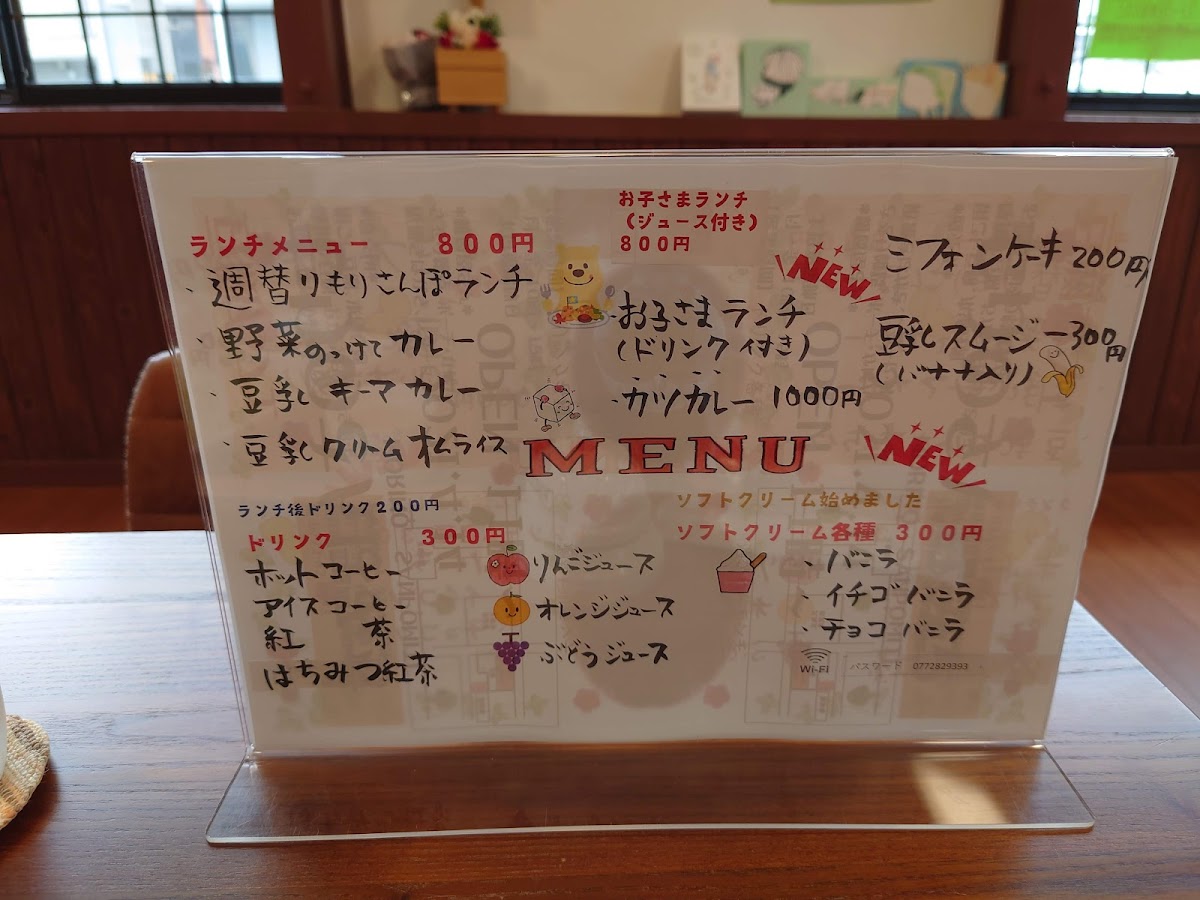 ランチメニュー 800円
・週替りもりさんぽランチ
・野菜のっけてカレー
・豆乳キーマカレー
・豆乳クリームオムライス
ランチ後ドリンク200円
ドリンク 300円
ホットコーヒー
アイスコーヒー
紅 茶
はちみつ紅茶
りんごジュース
オレンジジュース
ぶどうジュース
お子さまランチ
(ジュース付き)
800円
・お子さまランチ
(ドリンク付き)
・カツカレー 1000円
MENU
NEW
ミフォンケーキ 200円
豆乳スムージー300円
(バナナ入り)
NEW
ソフトクリーム始めました
ソフトクリーム各種 300円
・バニラ
・イチゴバニラ
・チョコバニラ
Wi-Fi パスワード 0772829393